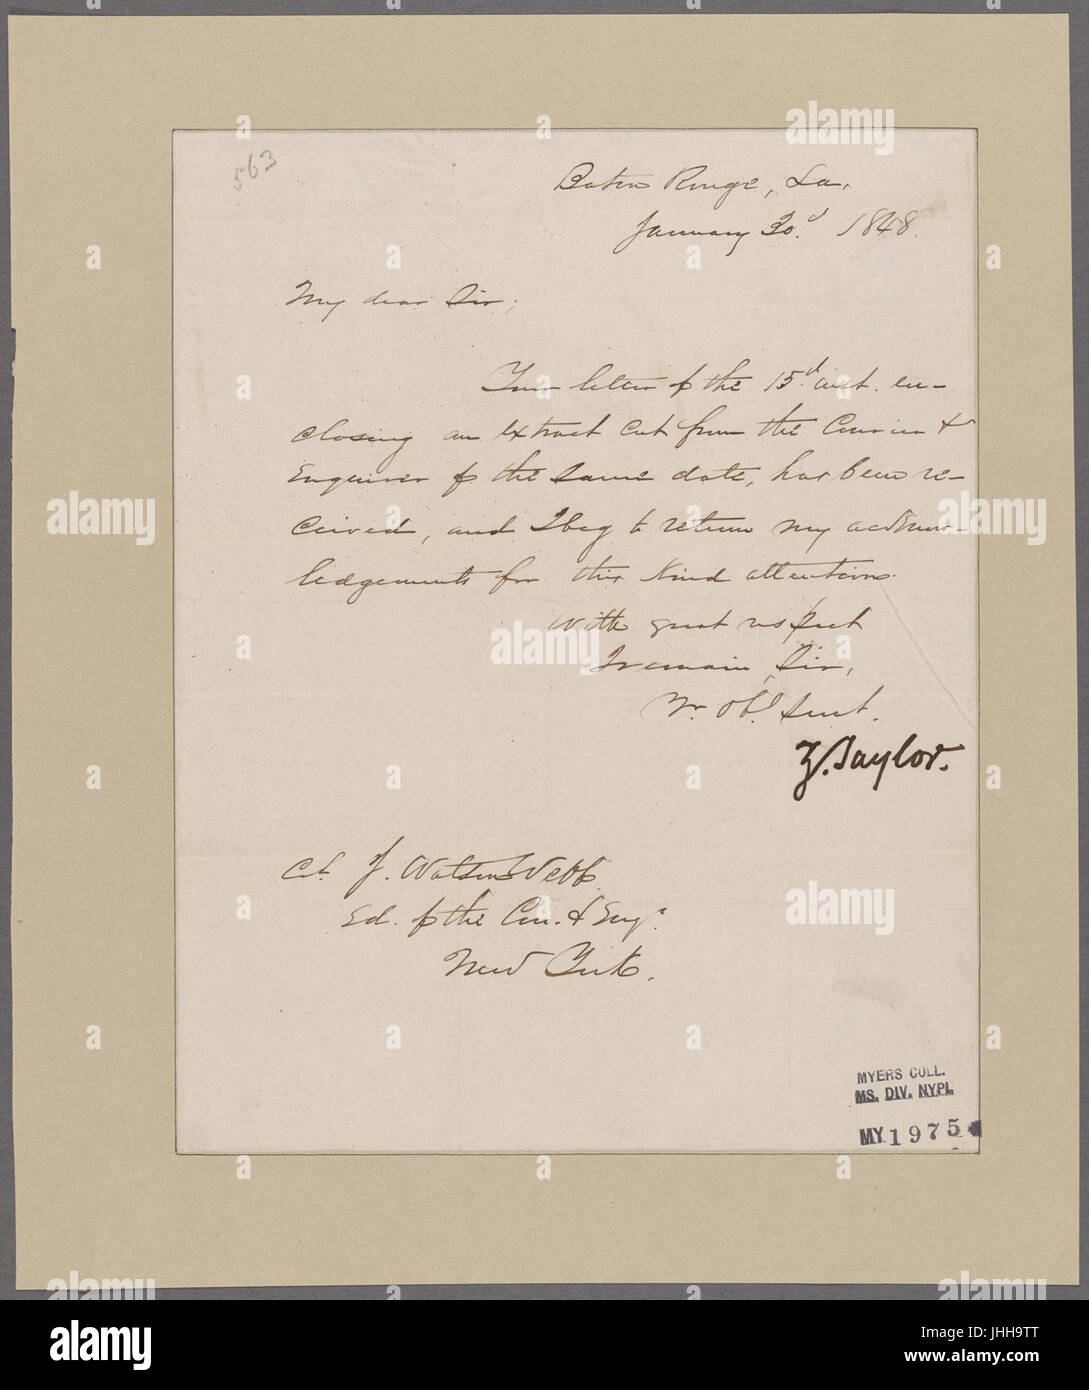 563
Baton Rouge, La.
January 30.d 1848.
My dear Sir;
Your letter of the 15.d inst. en-
closing an extract cut from the Courier &
Enquirer of the same date, has been re-
ceived, and I beg to return my acknow-
ledgements for this kind attention.
With great respect
I remain, Sir,
Yr. Obd Servt.
Z. Taylor.
Col. J. Watson Webb
Ed. of the Cou. & Enqr.
New York.
MYERS COLL.
MS. DIV. NYPL
MY 1975
alamy
alamy
alamy
alamy
alamy
alamy
alamy
Image ID: JHH9TT
www.alamy.com